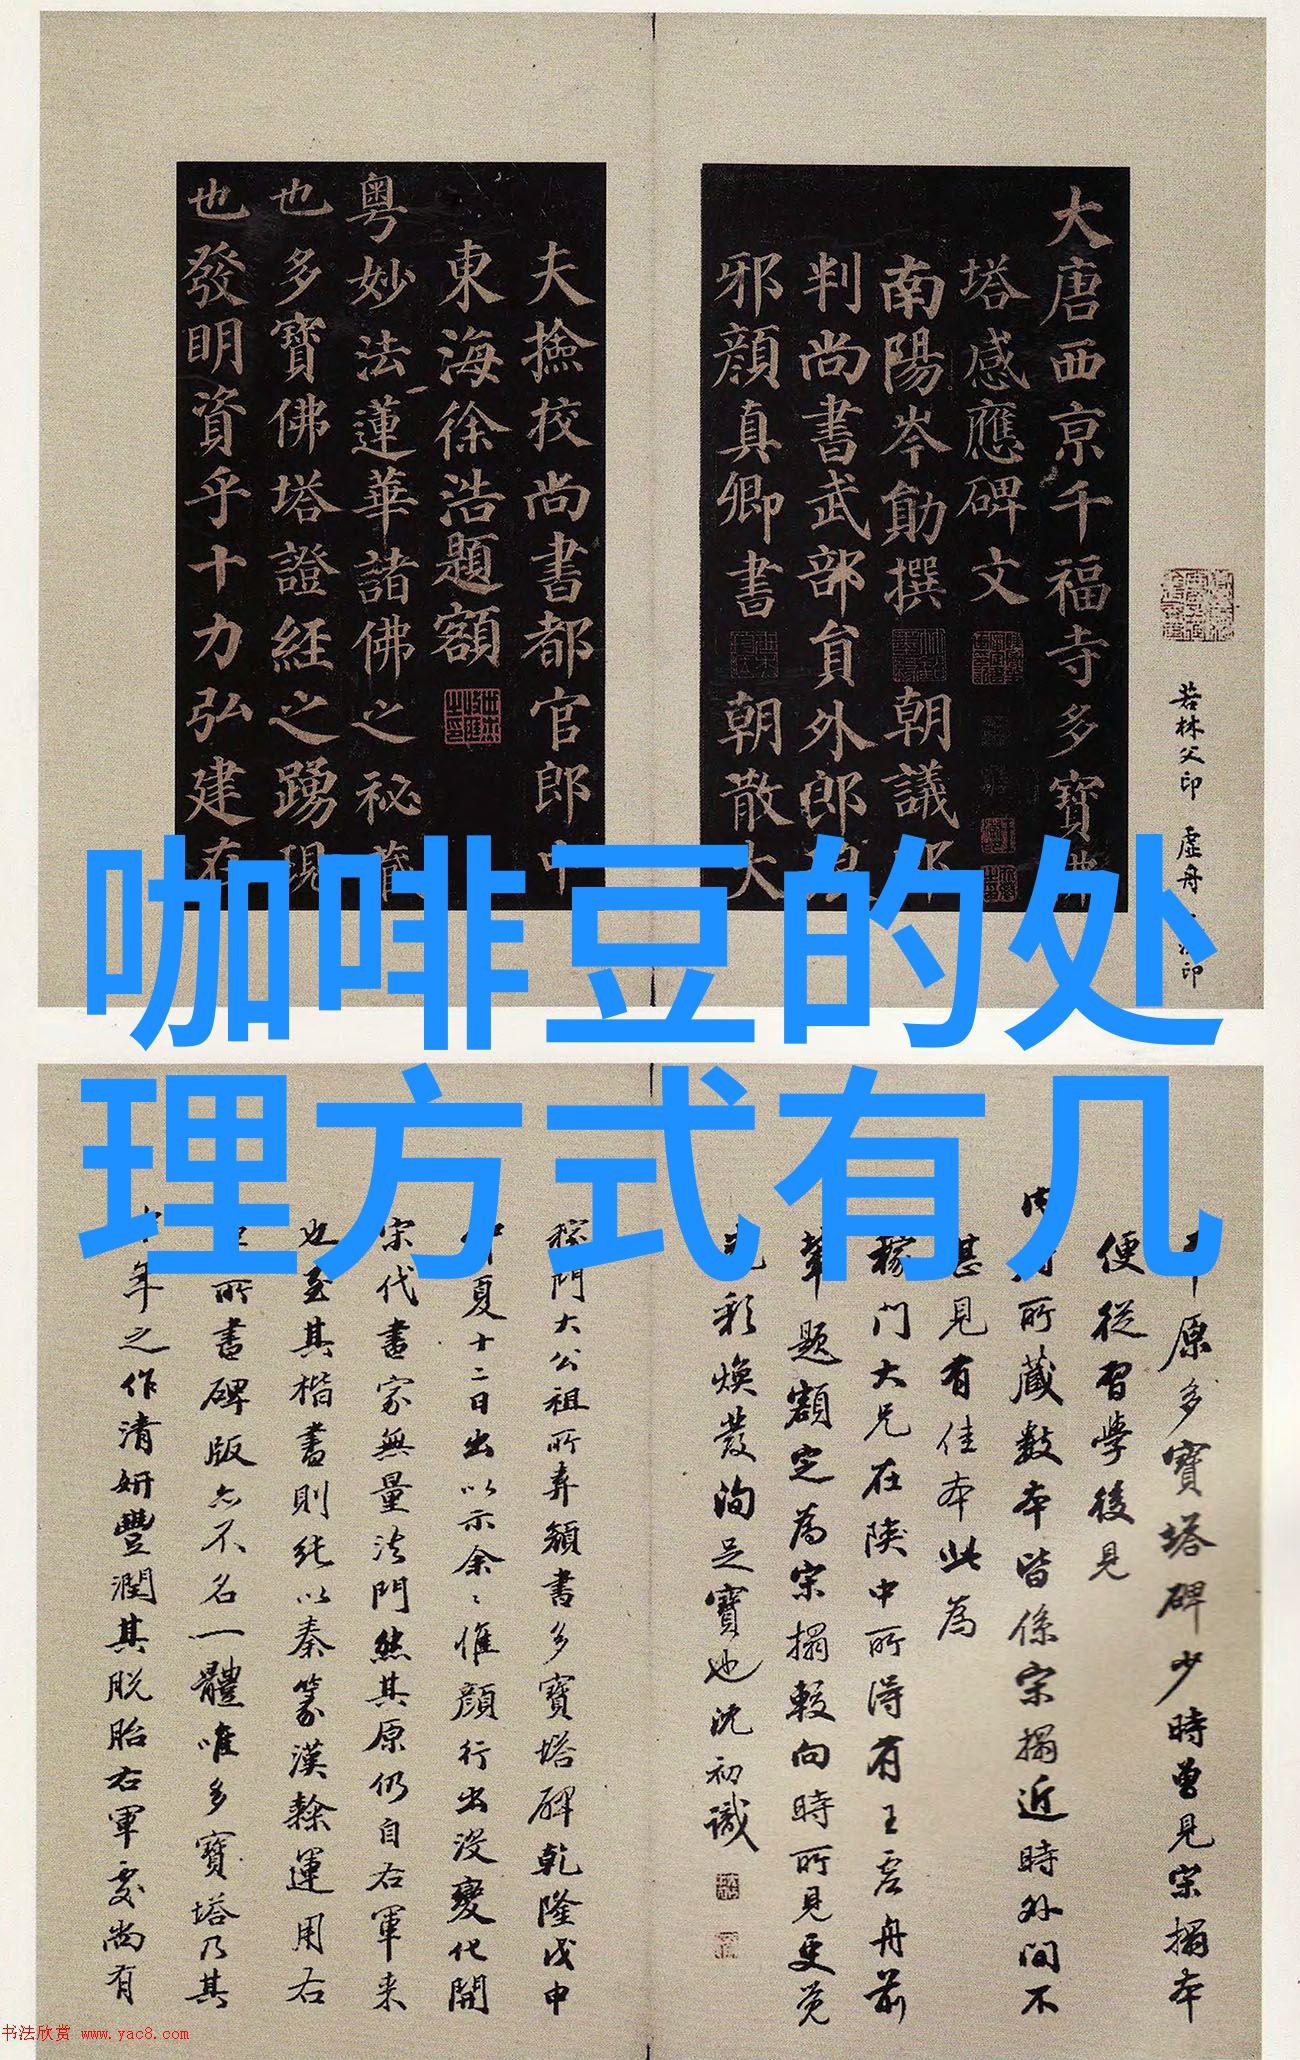 咖啡豆的处
理方式有几
若林父印 虛舟 印
大唐西京千福寺多寶佛
塔感應碑文
南陽岑勛撰 朝議郎
判尚書武部貟外郎琅
邪顏真卿書 朝散大
夫撿挍尚書都官郎中
東海徐浩題額
粵妙法蓮華諸佛之祕藏
也多寶佛塔證經之踴現
也發明資乎十力弘建在
原多寶塔碑少時曾見宋搨本
便從習學後見
所藏數本皆係宋搨近時外間不
甚見有佳本此為
稼門大兄在陝中所得有王虛舟前
輩題額定為宋搨較向時所見更覺
光彩煥發洵足寶也沈初識
稼門大公祖所弆顏書多寶塔碑乾隆戊申
仲夏十二日出以示余〻惟顏行出沒變化開
宋代書家無量法門然其原仍自右軍来
也至其楷書則純以秦篆漢隸運用右
所書碑版亦不名一體唯多寶塔乃其
中年之作清妍豐潤其脫胎右軍處尚有
书法欣赏 www.yac8.com